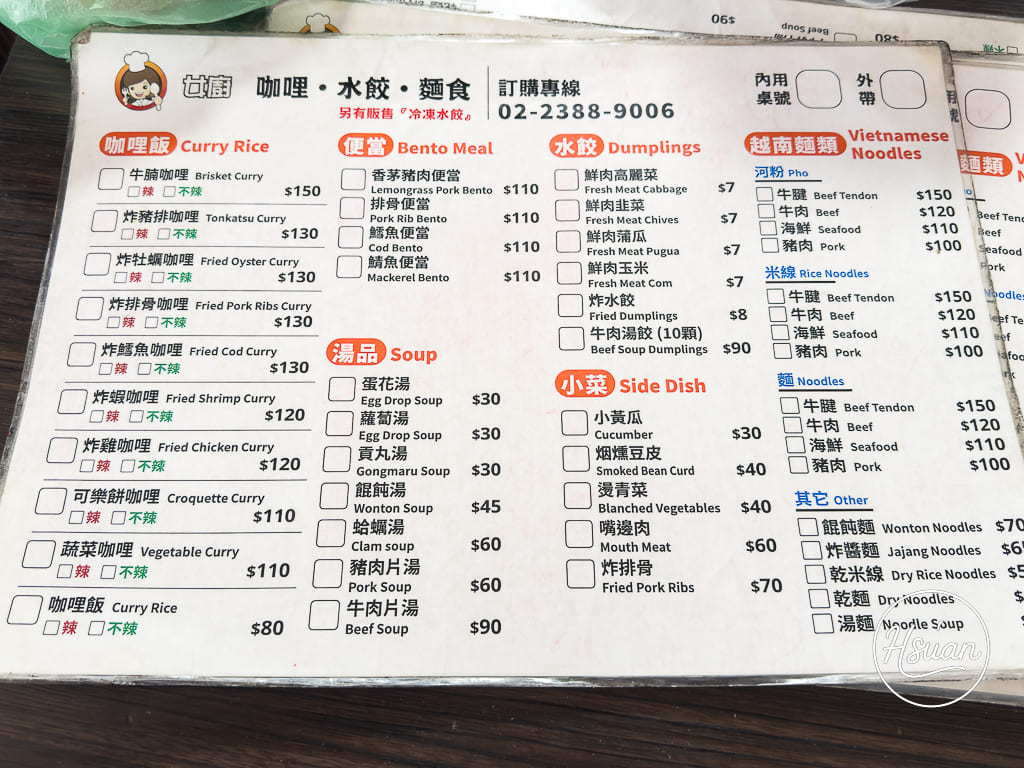 廿廚 咖哩・水餃・麵食
另有販售『冷凍水餃』
訂購專線
02-2388-9006
內用
桌號
外
帶
咖哩飯 Curry Rice
牛腩咖哩 Brisket Curry
辣 不辣 $150
炸豬排咖哩 Tonkatsu Curry
辣 不辣 $130
炸牡蠣咖哩 Fried Oyster Curry
辣 不辣 $130
炸排骨咖哩 Fried Pork Ribs Curry
辣 不辣 $130
炸鱈魚咖哩 Fried Cod Curry
辣 不辣 $130
炸蝦咖哩 Fried Shrimp Curry
辣 不辣 $120
炸雞咖哩 Fried Chicken Curry
辣 不辣 $120
可樂餅咖哩 Croquette Curry
辣 不辣 $110
蔬菜咖哩 Vegetable Curry
辣 不辣 $110
咖哩飯 Curry Rice
辣 不辣 $80
便當 Bento Meal
香茅豬肉便當
Lemongrass Pork Bento $110
排骨便當
Pork Rib Bento $110
鱈魚便當
Cod Bento $110
鯖魚便當
Mackerel Bento $110
湯品 Soup
蛋花湯
Egg Drop Soup $30
蘿蔔湯
Egg Drop Soup $30
貢丸湯
Gongmaru Soup $30
餛飩湯
Wonton Soup $45
蛤蠣湯
Clam soup $60
豬肉片湯
Pork Soup $60
牛肉片湯
Beef Soup $90
水餃 Dumplings
鮮肉高麗菜
Fresh Meat Cabbage $7
鮮肉韭菜
Fresh Meat Chives $7
鮮肉蒲瓜
Fresh Meat Pugua $7
鮮肉玉米
Fresh Meat Com $7
炸水餃
Fried Dumplings $8
牛肉湯餃 (10顆)
Beef Soup Dumplings $90
小菜 Side Dish
小黃瓜
Cucumber $30
烟燻豆皮
Smoked Bean Curd $40
燙青菜
Blanched Vegetables $40
嘴邊肉
Mouth Meat $60
炸排骨
Fried Pork Ribs $70
越南麵類 Vietnamese
Noodles
河粉 Pho
牛腱 Beef Tendon $150
牛肉 Beef $120
海鮮 Seafood $110
豬肉 Pork $100
米線 Rice Noodles
牛腱 Beef Tendon $150
牛肉 Beef $120
海鮮 Seafood $110
豬肉 Pork $100
麵 Noodles
牛腱 Beef Tendon $150
牛肉 Beef $120
海鮮 Seafood $110
豬肉 Pork $100
其它 Other
餛飩麵 Wonton Noodles $70
炸醬麵 Jajang Noodles
乾米線 Dry Rice Noodles
乾麵 Dry Noodles
湯麵 Noodle Soup
Hsuan
$90
Beef Soup
$80
不辣
麵類